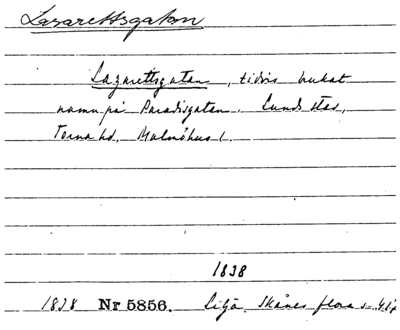 Lazarettsgatan
Lazarettsgatan, tidvis brukat
namn på Paradisgatan. Lunds stad,
Torna hd. Malmöhus l.
1838
1838 Nr 5856. Lilja Skånes flora s.